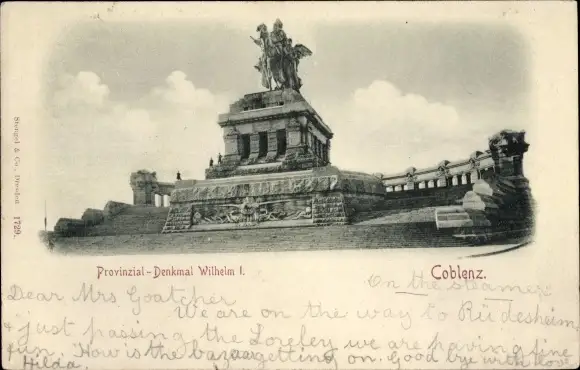 Provinzial-Denkmal Wilhelm I.
Coblenz.
Stengel & Co., Dresden 1729.
On the steamer
Dear Mrs Goatcher
We are on the way to Rüdesheim,
& just passing the Loreley we are having fine
fun. How is the bazaar getting on. Good bye with love
Hilda.